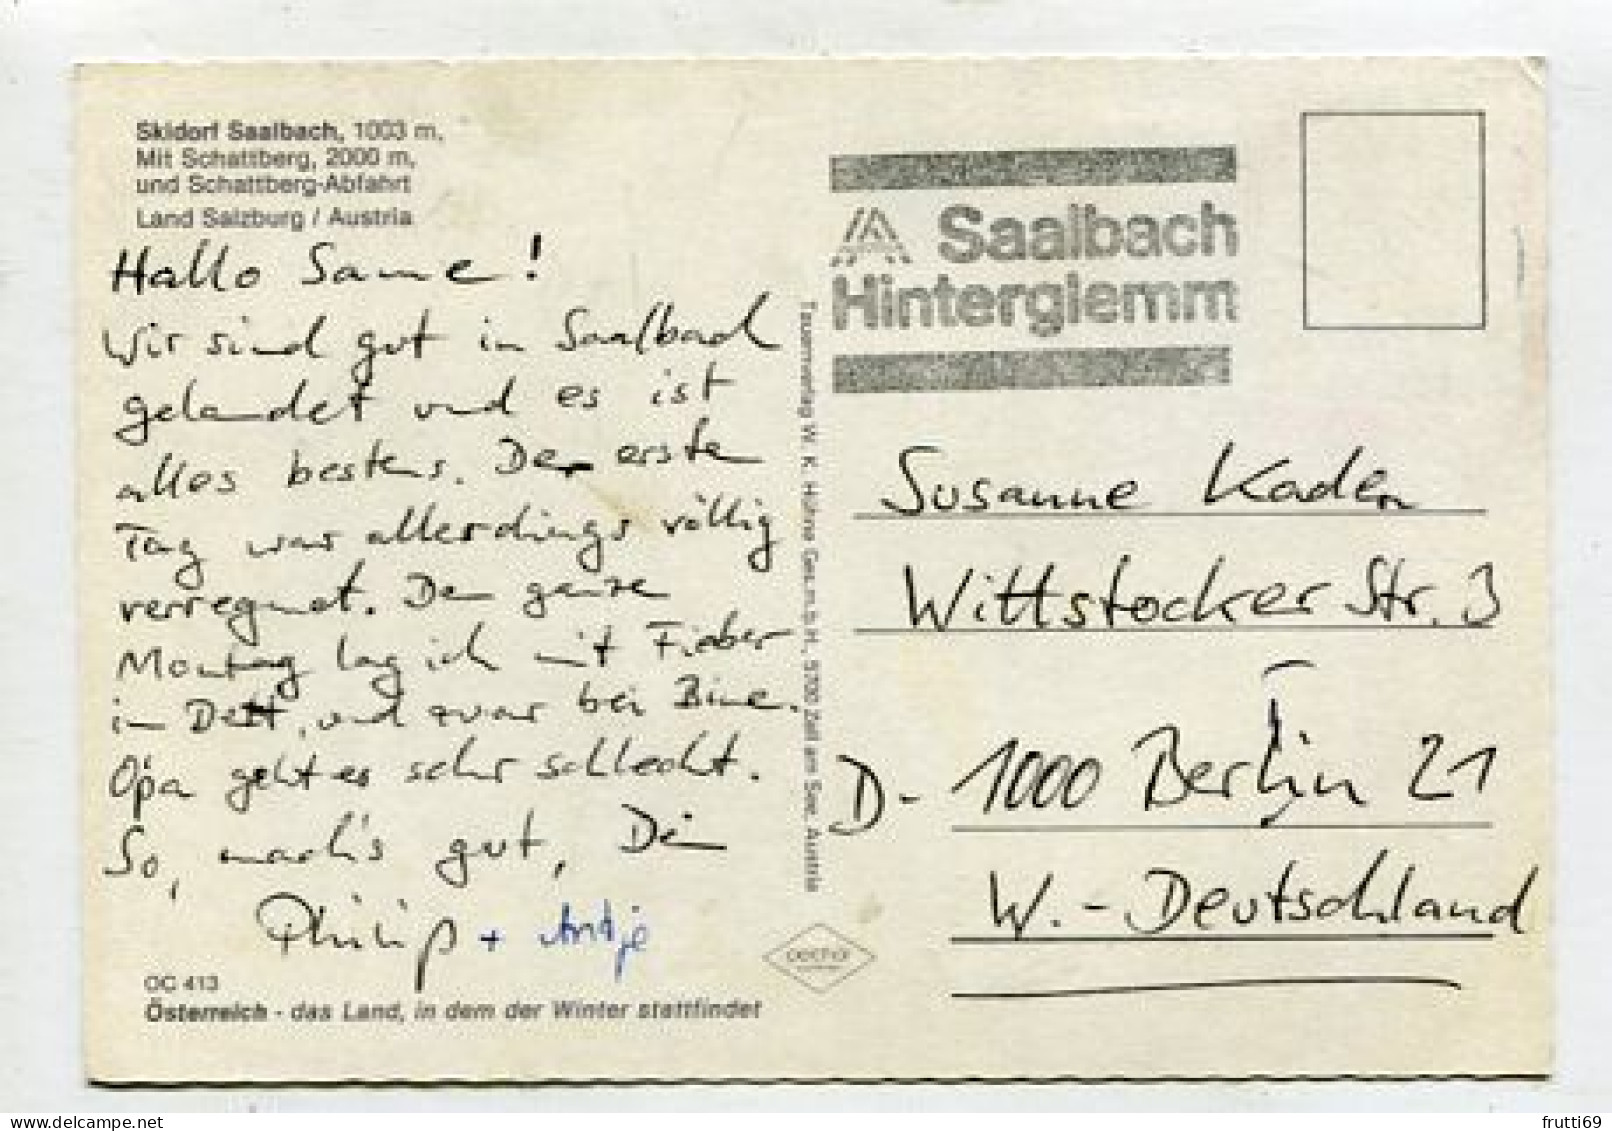 Skidorf Saalbach, 1003 m,
Mit Schattberg, 2000 m,
und Schattberg-Abfahrt
Land Salzburg / Austria
Hallo Sanne!
Wir sind gut in Saalbach
gelandet und es ist
alles bestens. Der erste
Tag war allerdings völlig
verregnet. Den ganzen
Montag lag ich mit Fieber
im Bett, und zwar bei Bine.
Opa geht es sehr schlecht.
So, mach's gut, Dein
Philip + Antje
OC 413
Österreich - das Land, in dem der Winter stattfindet
Tauernverlag W. K. Höhne Ges.m.b.H., 5700 Zell am See, Austria
Saalbach
Hinterglemm
Susanne Kaden
Wittstocker Str. 3
D - 1000 Berlin 21
W.-Deutschland
delcampe.net
frutti69